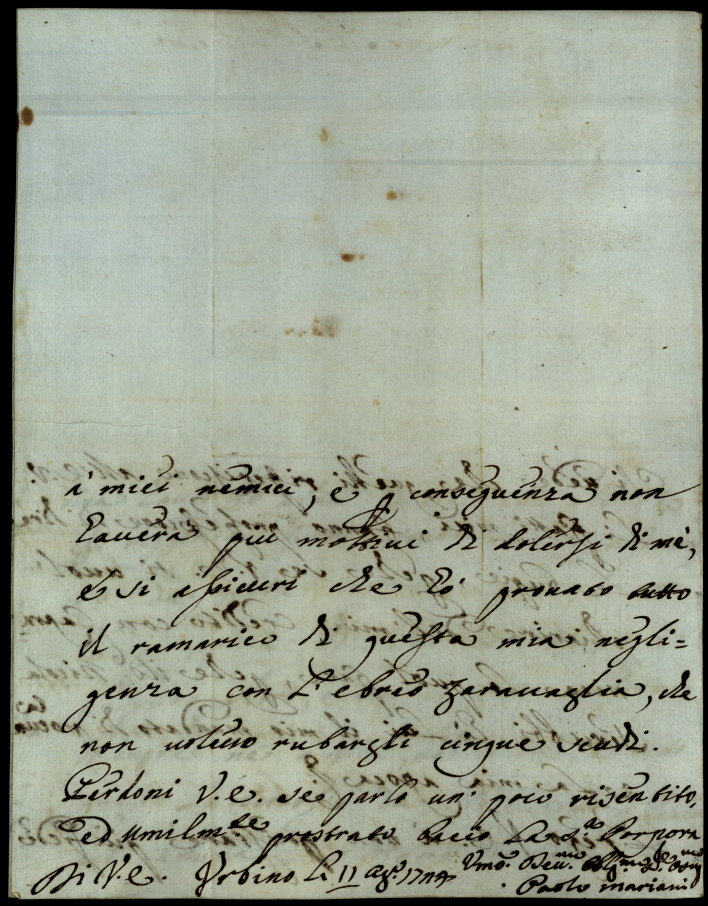 a' miei nemici, e p conseguenza non
havera piu mottivi di dolersi di mè,
e si assicuri che hò provato tutto
il ramarico di questa mia negli=
genza con l'ebreo Zaravaglia, che
non volevo rubargli cinque scudi.
Perdoni V.E. se parlo un' poco risentito,
ed umilm.te prostrato bacio la S.a Porpora
Di V.E. Urbino li 11 ag.o 1744 Um.o Dev.mo
Paolo Mariani